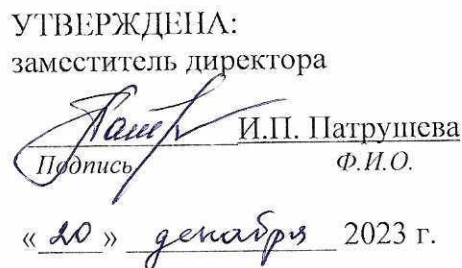 УТВЕРЖДЕНА:
заместитель директора
И.П. Патрушева
Подпись Ф.И.О.
« 20 » декабря 2023 г.